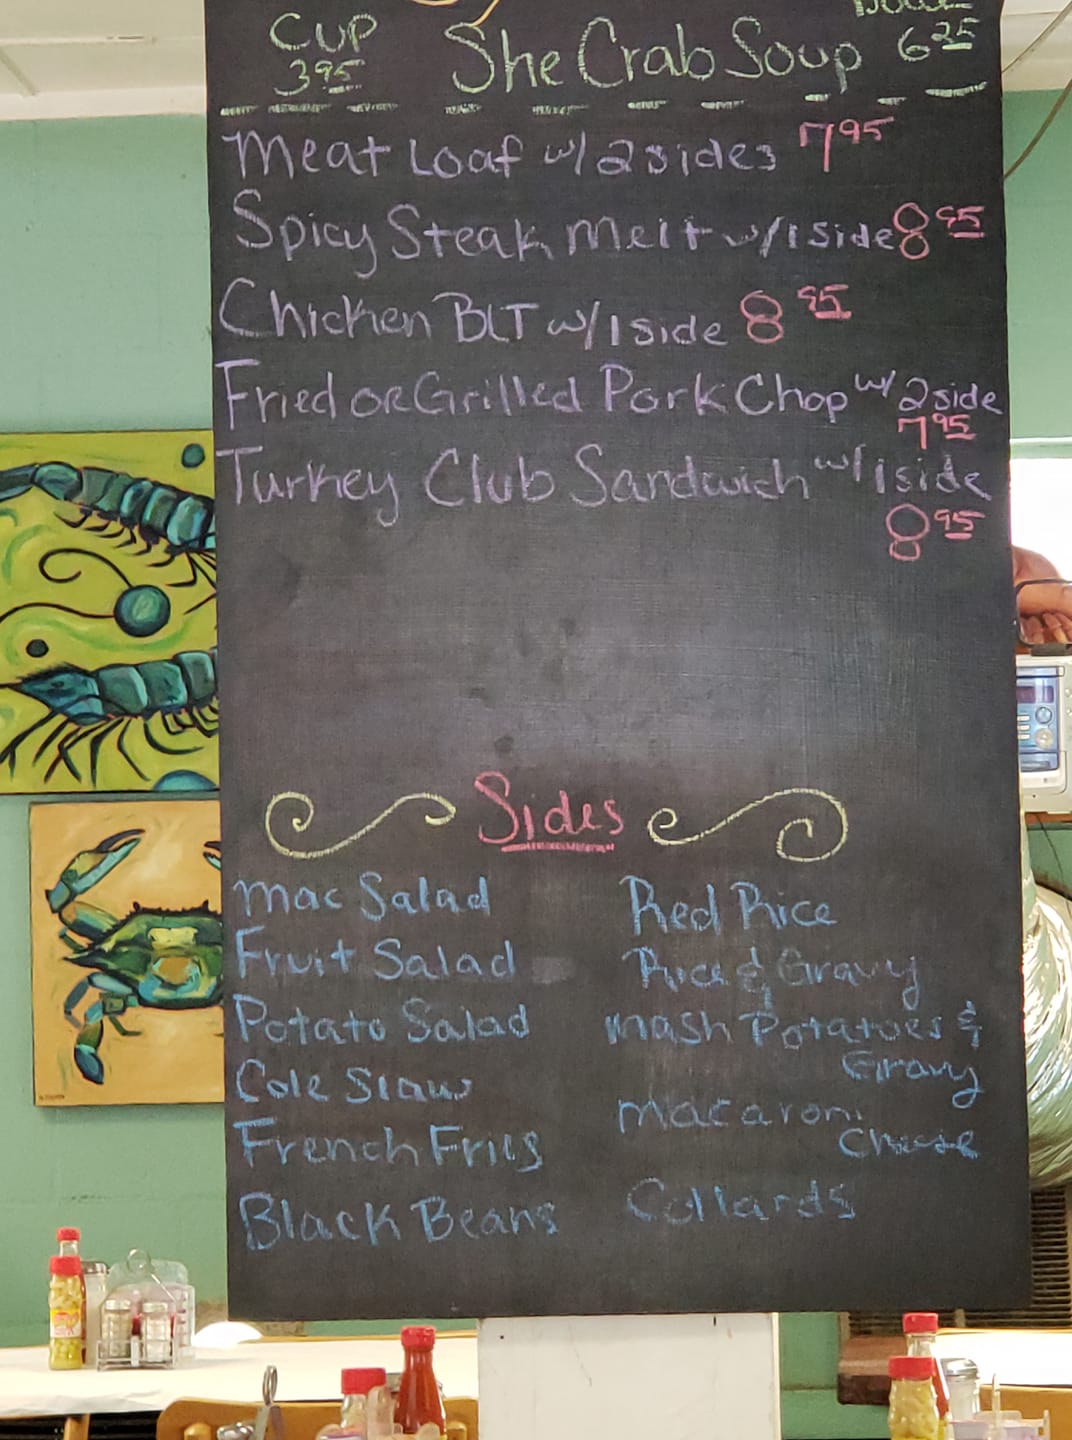 CUP She Crab Soup
3.95 6.25
Meat Loaf w/ 2 sides 7.95
Spicy Steak Melt w/ 1 side 8.95
Chicken BLT w/ 1 side 8.95
Fried or Grilled Pork Chop w/ 2 side
7.95
Turkey Club Sandwich w/ 1 side
8.95
Sides
Mac Salad
Fruit Salad
Potato Salad
Cole Slaw
French Fries
Black Beans
Red Rice
Rice & Gravy
Mash Potatoes &
Gravy
Macaroni
Cheese
Collards